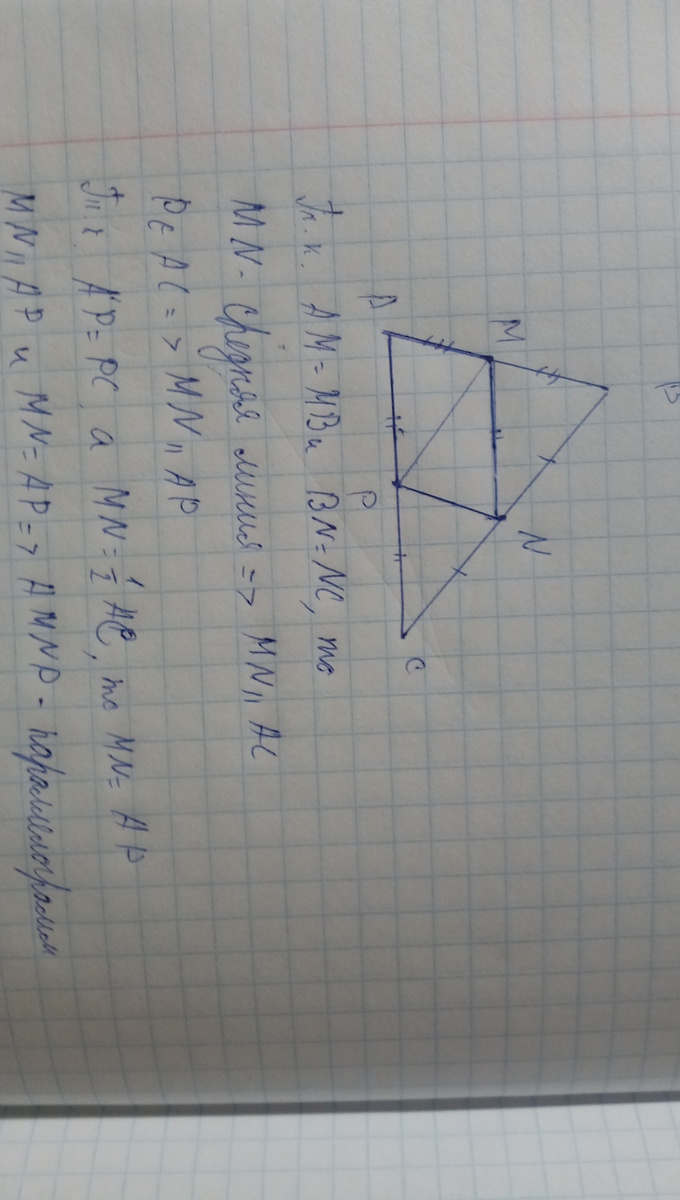 B
M
N
A
P
C
Т.к. AM = MB и BN = NC, то
MN - средняя линия => MN || AC
P ∈ AC => MN || AP
Т.к. AP = PC, а MN = 1/2 AC, то MN = AP
MN || AP и MN = AP => AMNP - параллелограмм